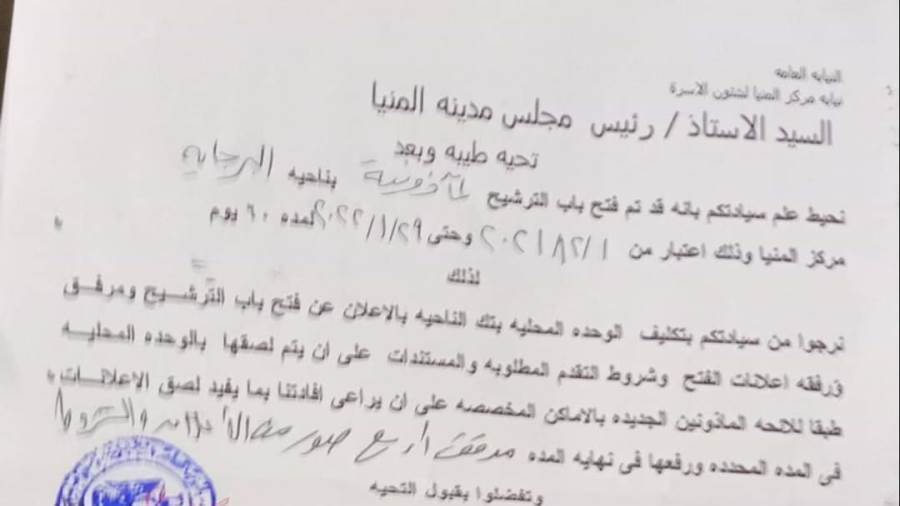 النيابه العامه
نيابه مركز المنيا لشئون الاسرة
السيد الاستاذ / رئيس مجلس مدينه المنيا
تحيه طيبه وبعد
نحيط علم سيادتكم بانه قد تم فتح باب الترشيح لمأذونية بناحيه البرجايه
مركز المنيا وذلك اعتبار من وحتى ٢٠٢٢/١/٢٩ لمده ٦٠ يوم
لذلك
نرجوا من سيادتكم بتكليف الوحده المحليه بتك الناحيه بالاعلان عن فتح باب الترشيح ومرفق
ورفقه اعلانات الفتح وشروط التقدم المطلوبه والمستندات على ان يتم لصقها بالوحده المحليه
طبقا للائحه الماذونين الجديده بالاماكن المخصصه على ان يراعى افادتنا بما يفيد لصق الاعلانات
فى المده المحدده ورفعها فى نهايه المده مرفق اربع صور من الاعلان والشروط
وتفضلوا بقبول التحيه